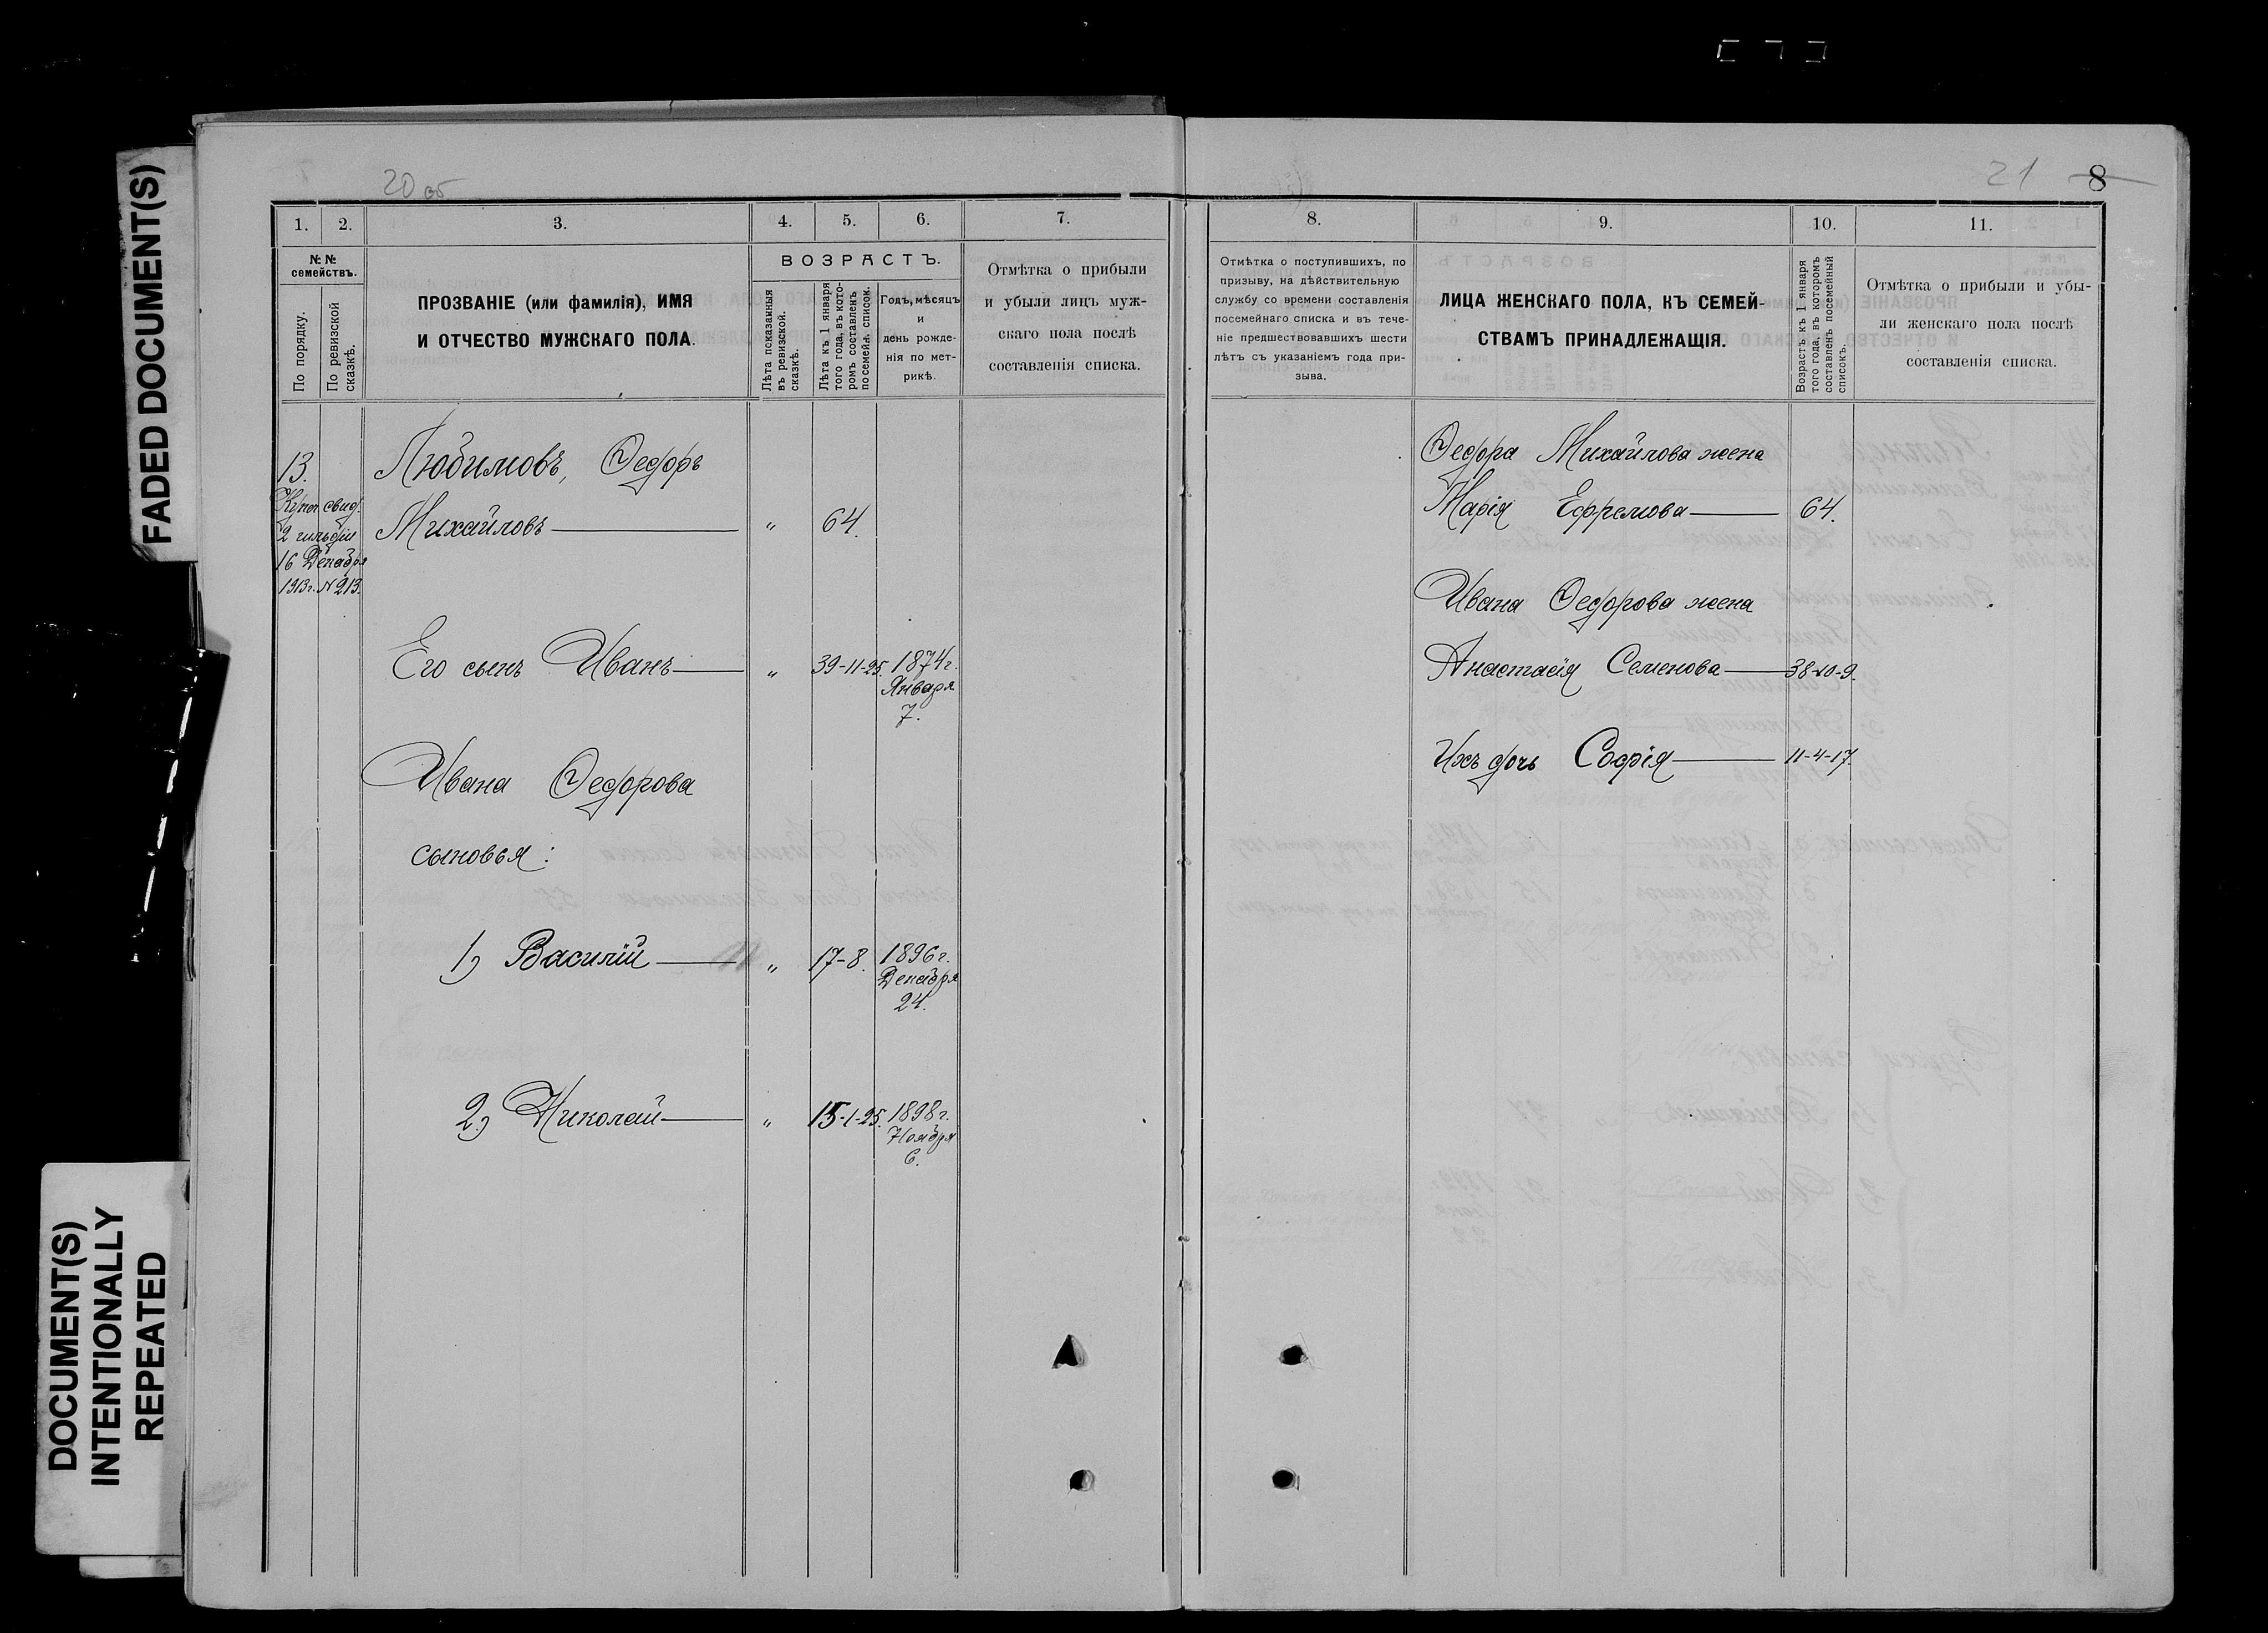 FADED DOCUMENT(S)
DOCUMENT(S)
INTENTIONALLY
REPEATED
20 об
1. 2. 3. 4. 5. 6. 7.
№ №
семействъ.
По порядку.
По ревизской
сказкѣ.
ПРОЗВАНІЕ (или фамилія), ИМЯ
И ОТЧЕСТВО МУЖСКАГО ПОЛА.
ВОЗРАСТЪ.
Лѣта показанныя
въ ревизской.
сказкѣ.
Лѣта къ 1 января
того года, въ кото-
ромъ составленъ
посемейн. списокъ.
Годъ, мѣсяцъ
и
день рожде-
нія по мет-
рикѣ.
Отмѣтка о прибыли
и убыли лицъ муж-
скаго пола послѣ
составленія списка.
13.
Купч. свид.
2 гильдіи
16 Декабря
1913 г. № 213.
Любимовъ, Ѳедоръ
Михайловъ — „ 64.
Его сынъ Иванъ — „ 39-11-25. 1874 г.
Января
7.
Ивана Ѳедорова
сыновья:
1) Василій — „ 17-8. 1896 г.
Декабря
24.
2) Николай — „ 15-1-25. 1898 г.
Ноября
6.
21 8
8. 9. 10. 11.
Отмѣтка о поступившихъ, по
призыву, на дѣйствительную
службу со времени составленія
посемейнаго списка и въ тече-
ніе предшествовавшихъ шести
лѣтъ съ указаніемъ года при-
зыва.
ЛИЦА ЖЕНСКАГО ПОЛА, КЪ СЕМЕЙ-
СТВАМЪ ПРИНАДЛЕЖАЩІЯ.
Возрастъ къ 1 января
того года, въ которомъ
составленъ посемейный
списокъ.
Отмѣтка о прибыли и убы-
ли женскаго пола послѣ
составленія списка.
Ѳедора Михайлова жена
Марія Ефремова — 64.
Ивана Ѳедорова жена
Анастасія Семенова — 38-10-9.
Ихъ дочь Софія — 11-4-17.